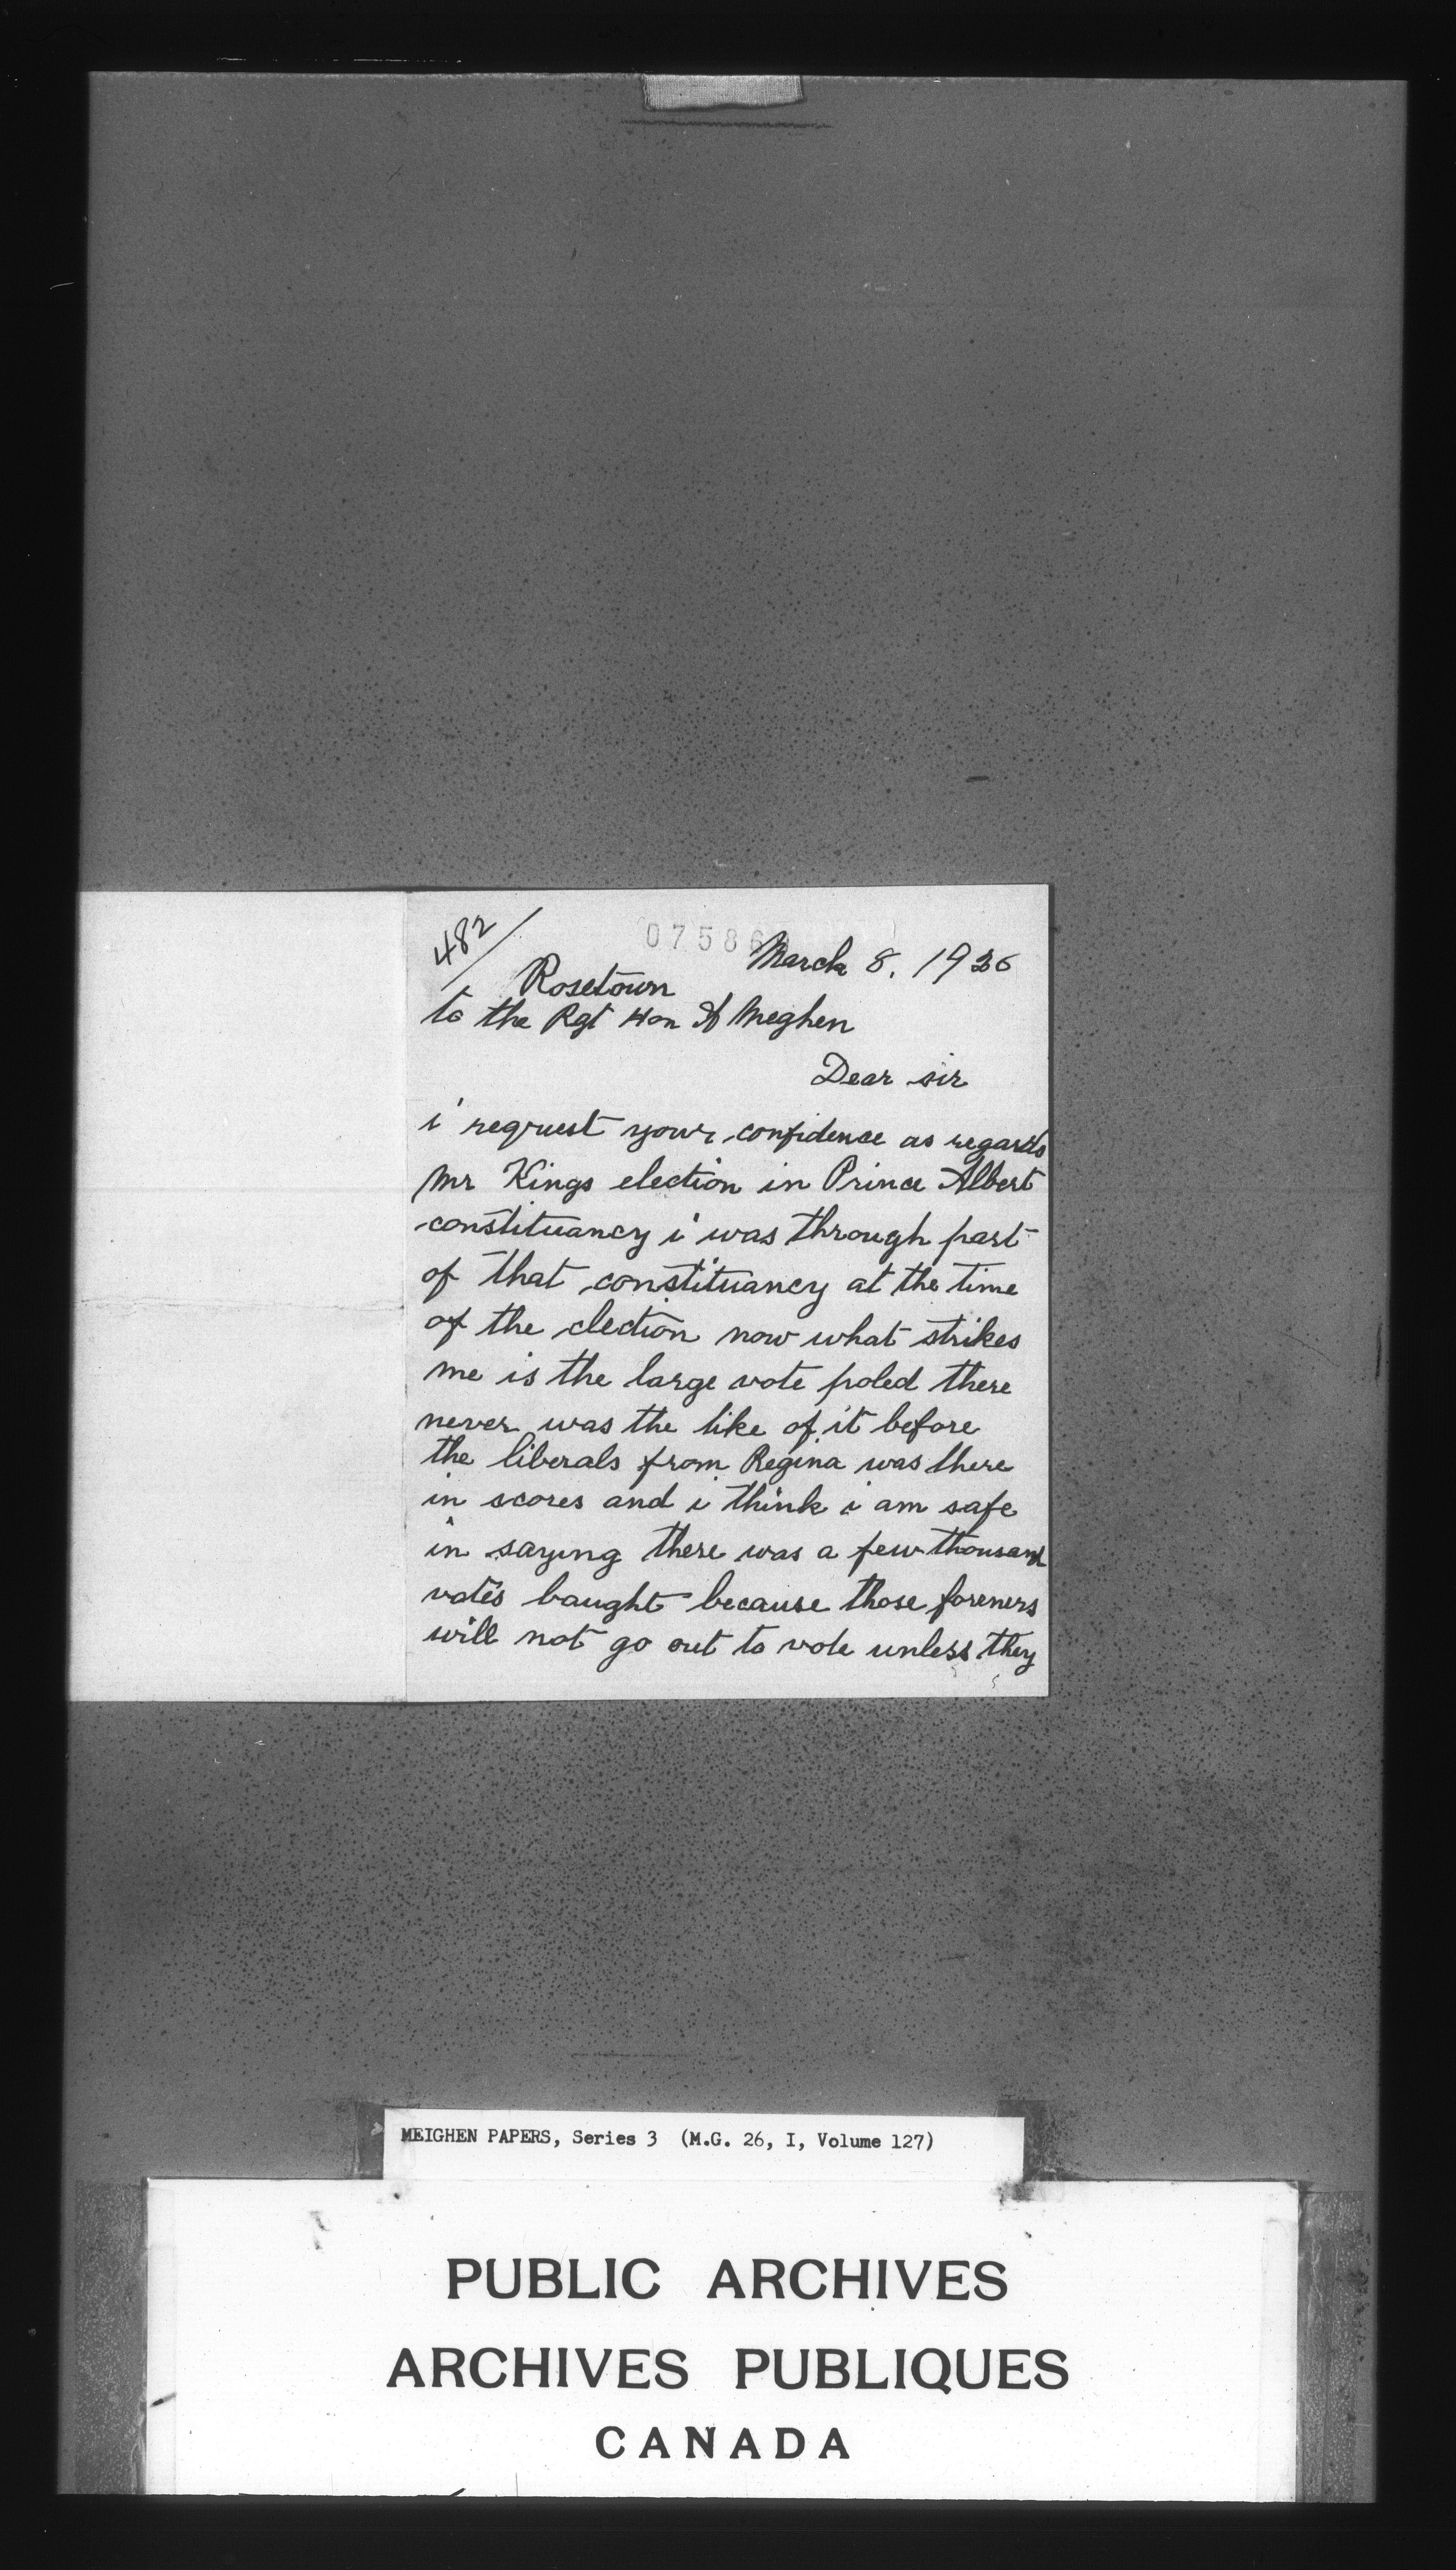 482/
07586
March 8. 1926
Rosetown
to the Rgt Hon A Meghen
Dear sir
i request your confidence as regards
Mr Kings election in Prince Albert
constituancy i was through part
of that constituancy at the time
of the election now what strikes
me is the large vote poled there
never was the like of it before
the liberals from Regina was there
in scores and i think i am safe
in saying there was a few thousand
votes baught because those foreners
will not go out to vote unless they
MEIGHEN PAPERS, Series 3 (M.G. 26, I, Volume 127)
PUBLIC ARCHIVES
ARCHIVES PUBLIQUES
CANADA